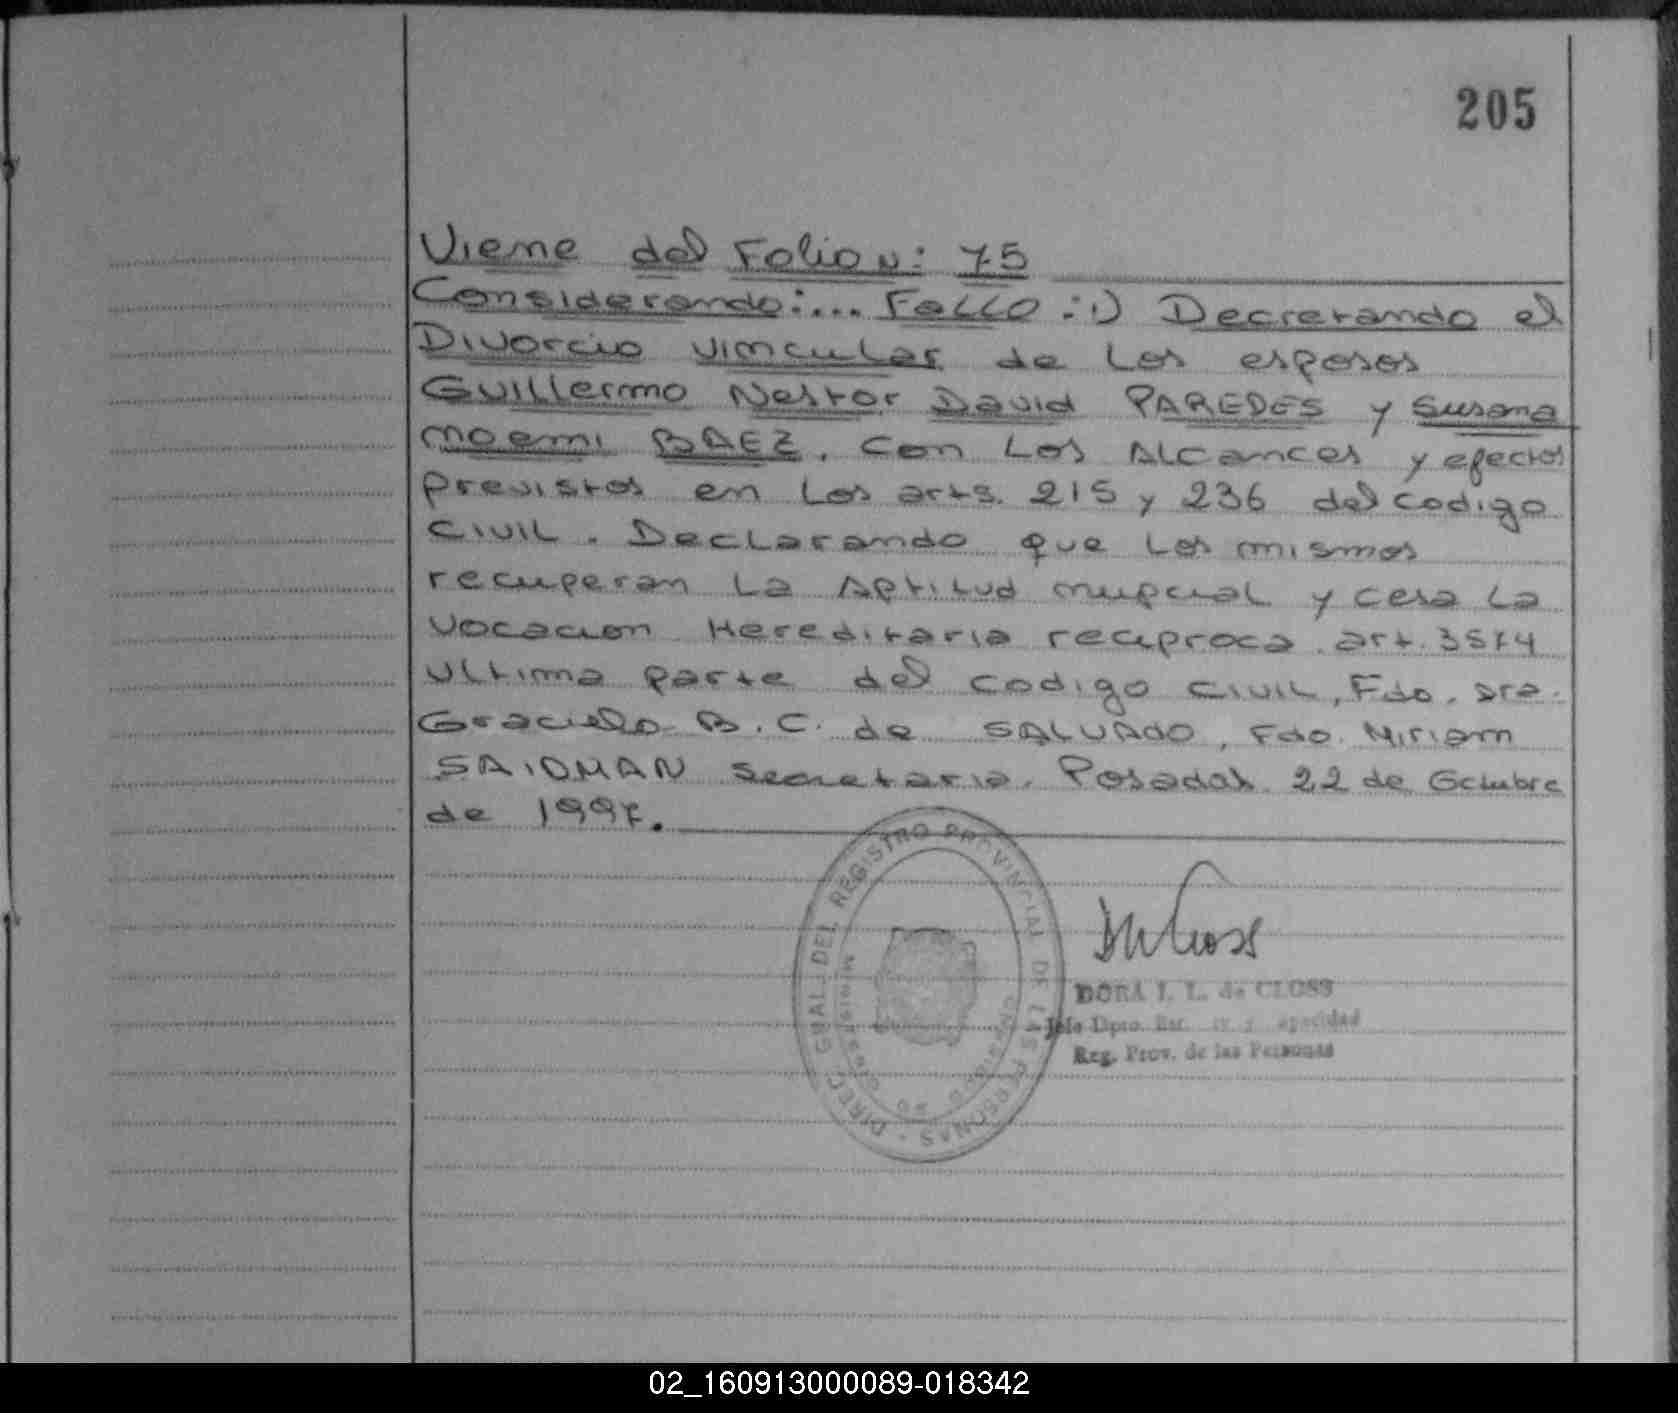 205
Viene del Folio N: 75
Considerando:... Fallo :1) Decretando el
Divorcio vincular de Los esposos
Guillermo Nestor David PAREDES y Susana
Noemi BAEZ. Con Los Alcances y efectos
previstos en Los arts. 215 y 236 del Codigo
Civil. Declarando que Los mismos
recuperan La Aptitud nupcial y cesa La
vocacion Hereditaria reciproca. art. 3574
ultima parte del Codigo Civil, Fdo. Dra.
Graciela B. C. de SALVADO, Fdo. Miriam
SAIDMAN Secretaria. Posadas 22 de Octubre
de 1997.
DIREC. GRAL. DEL REGISTRO PROVINCIAL DE LAS PERSONAS
MISIONES
POSADAS
DORA I. L. de CLOSS
Jefe Dpto.
Reg. Prov. de las Personas
02_160913000089-018342